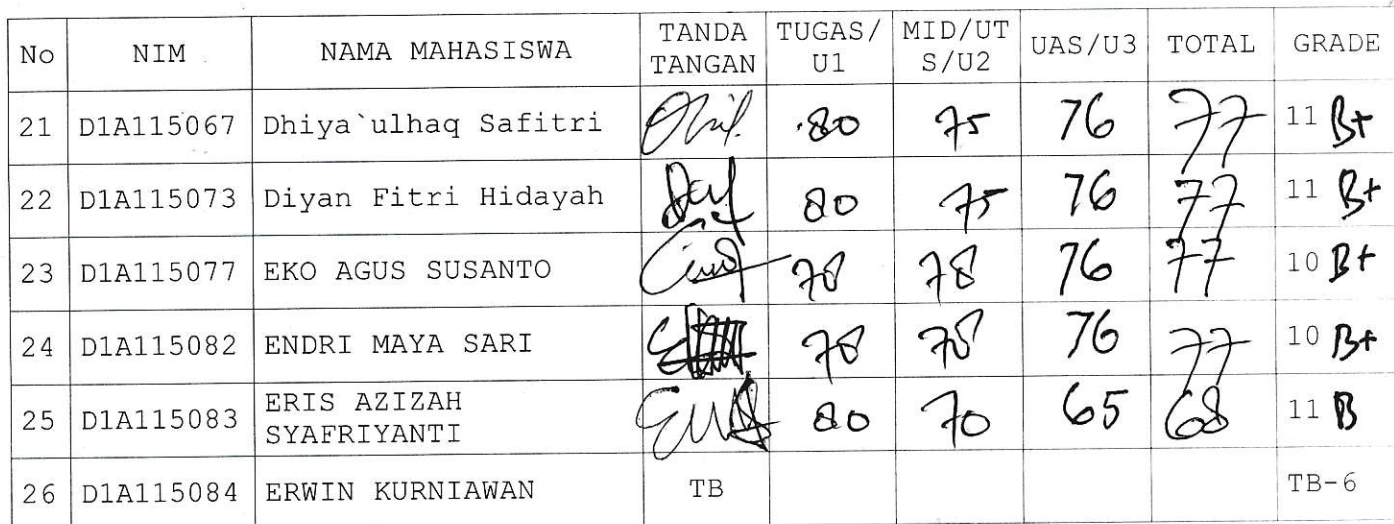 No NIM NAMA MAHASISWA TANDA TANGAN TUGAS/U1 MID/UTS/U2 UAS/U3 TOTAL GRADE
21 D1A115067 Dhiya`ulhaq Safitri 80 75 76 77 11 B+
22 D1A115073 Diyan Fitri Hidayah 80 75 76 77 11 B+
23 D1A115077 EKO AGUS SUSANTO 78 78 76 77 10 B+
24 D1A115082 ENDRI MAYA SARI 78 78 76 77 10 B+
25 D1A115083 ERIS AZIZAH SYAFRIYANTI 80 70 65 68 11 B
26 D1A115084 ERWIN KURNIAWAN TB TB-6